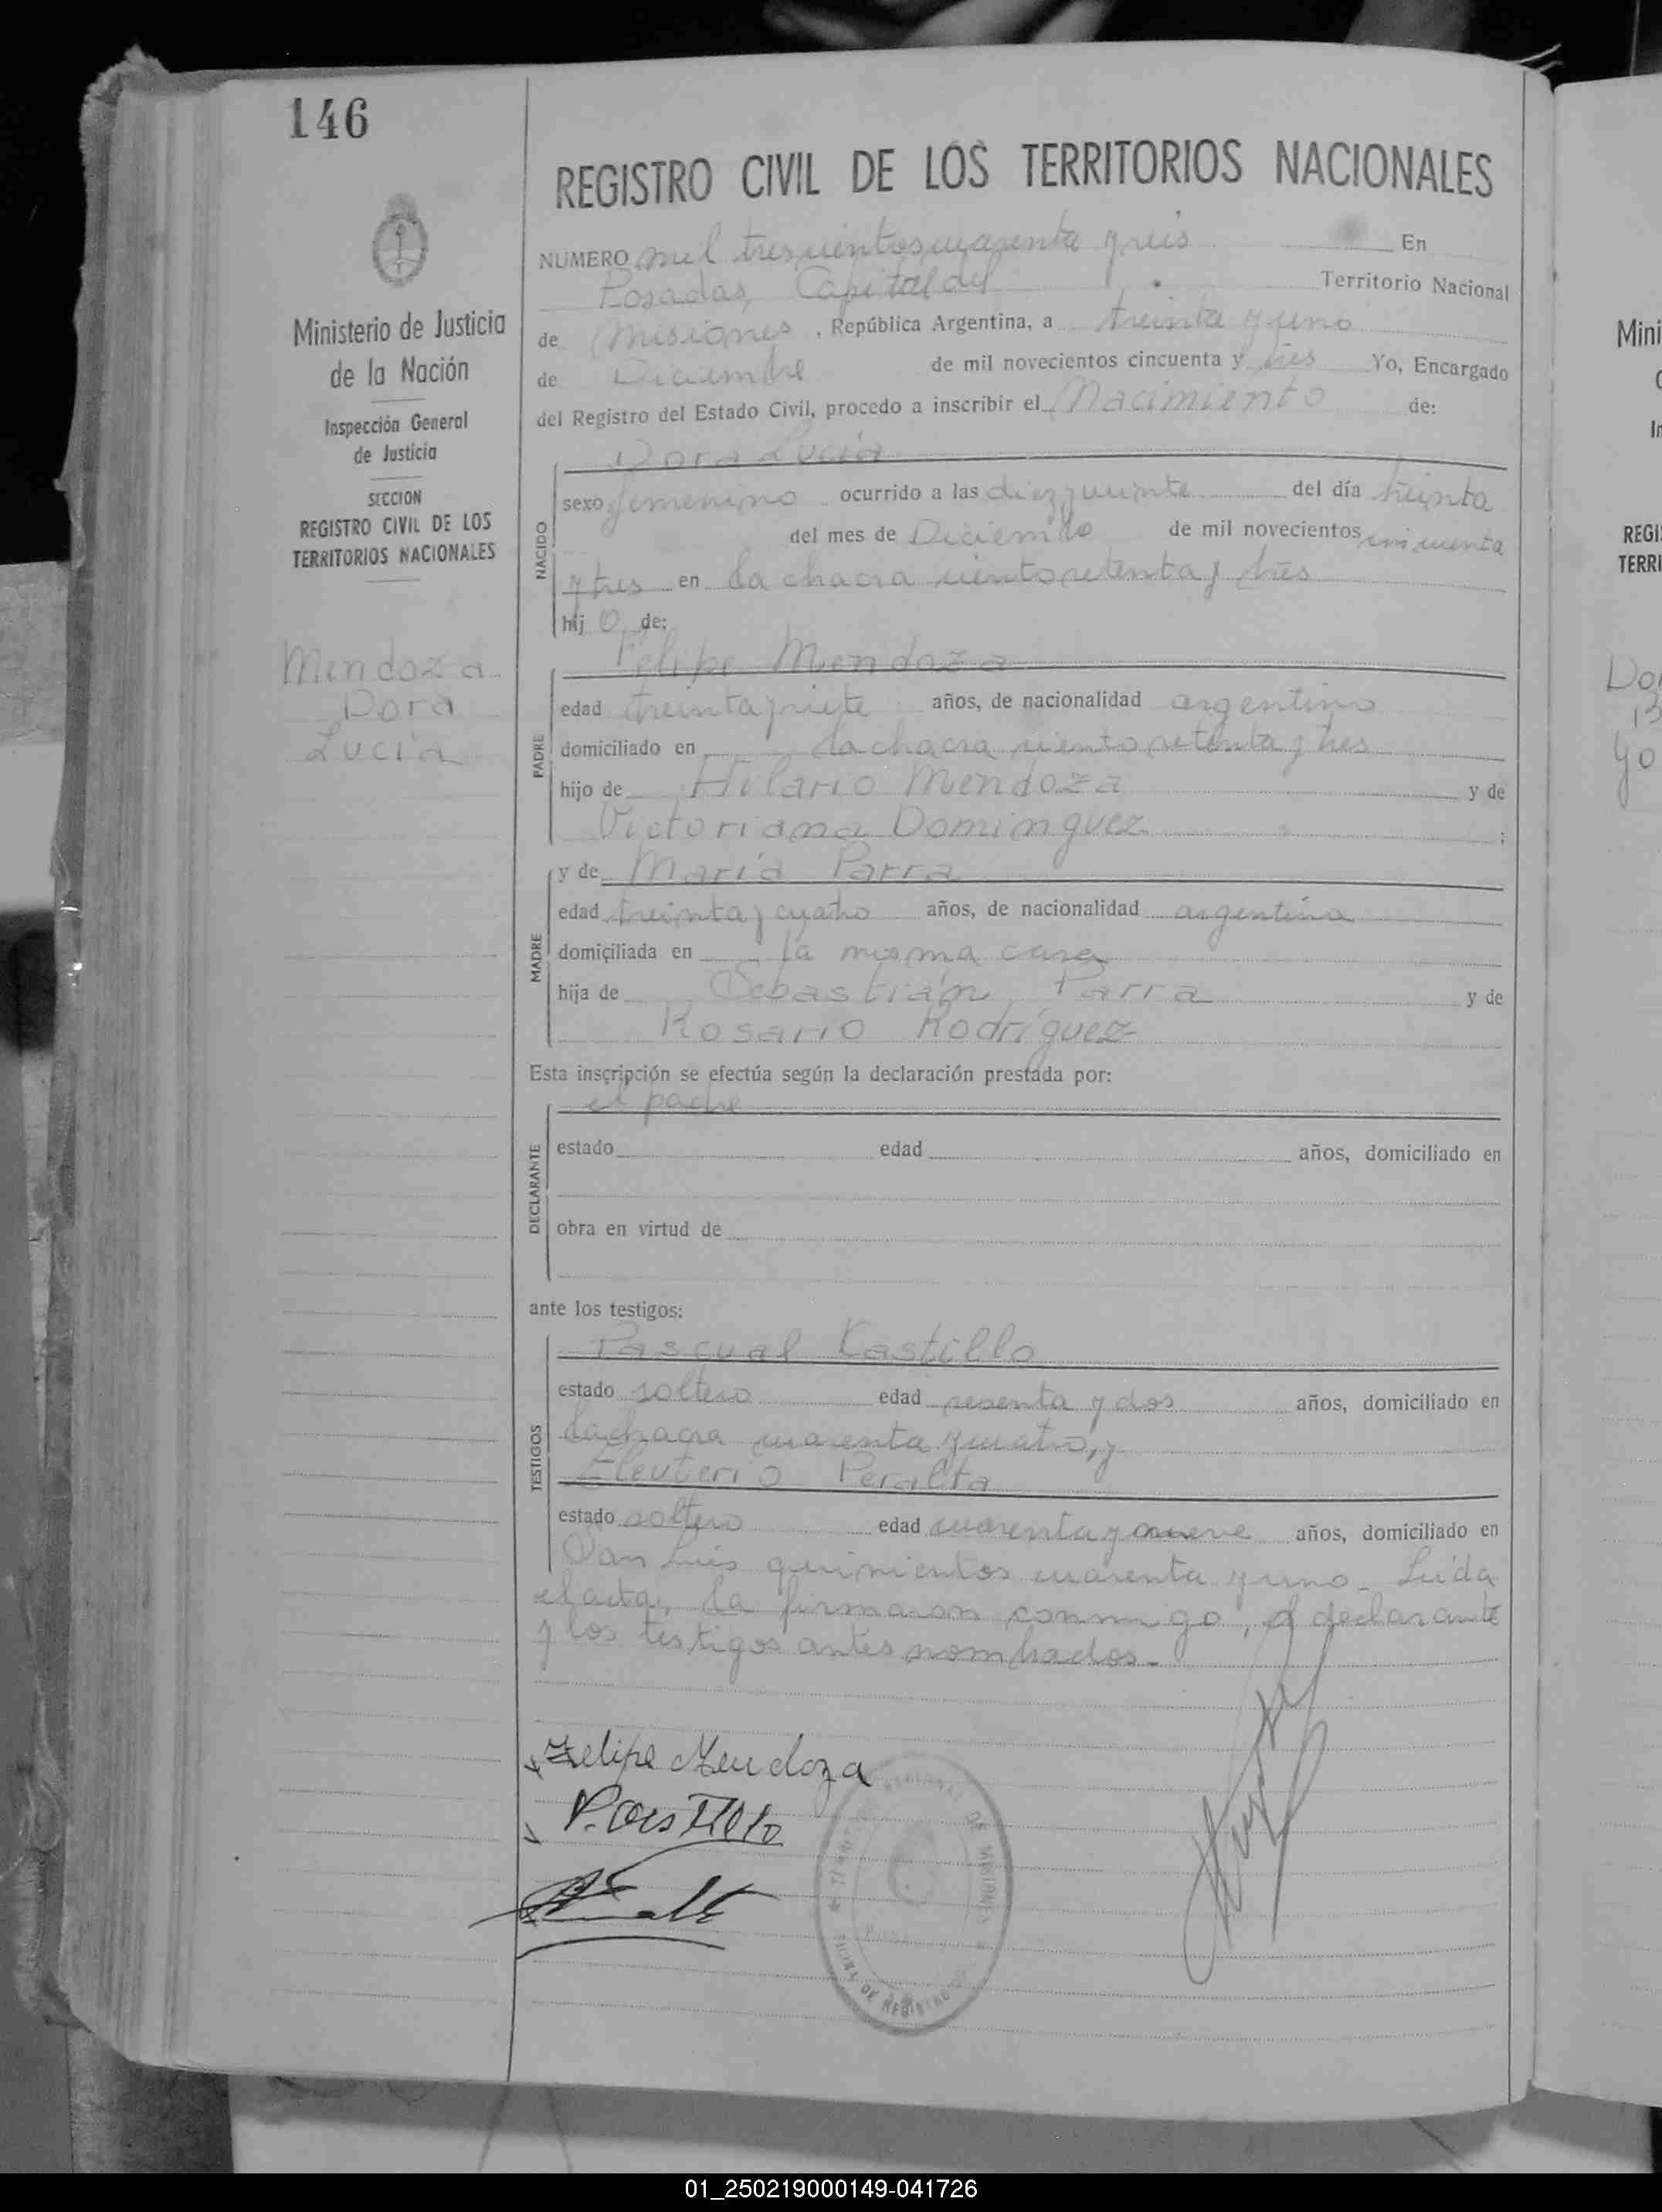 146
REGISTRO CIVIL DE LOS TERRITORIOS NACIONALES
NUMERO mil trescientos cuarenta y seis En
Posadas, Capital del Territorio Nacional
de Misiones, República Argentina, a treinta y uno
de Diciembre de mil novecientos cincuenta y tres Yo, Encargado
del Registro del Estado Civil, procedo a inscribir el Nacimiento de:
Dora Lucía
sexo femenino ocurrido a las diez y veinte del día treinta
del mes de Diciembre de mil novecientos cincuenta
y tres en la chacra ciento setenta y tres
hij o de:
Felipe Mendoza
edad treinta y siete años, de nacionalidad argentino
domiciliado en la chacra ciento setenta y tres
hijo de Hilario Mendoza y de
Victoriana Dominguez ;
y de María Parra
edad treinta y cuatro años, de nacionalidad argentina
domiciliada en la misma casa
hija de Sebastián Parra y de
Rosario Rodríguez
Esta inscripción se efectúa según la declaración prestada por:
el padre
estado edad años, domiciliado en
obra en virtud de
ante los testigos:
Pascual Kastillo
estado soltero edad sesenta y dos años, domiciliado en
la chacra cuarenta y cuatro, y
Eleuterio Peralta
estado soltero edad cuarenta y nueve años, domiciliado en
San Luis quinientos cuarenta y uno. Leída
el acta, la firmaron conmigo, el declarante
y los testigos antes nombrados.
Felipe Mendoza
P. Castillo
NACIDO
PADRE
MADRE
DECLARANTE
TESTIGOS
Ministerio de Justicia
de la Nación
Inspección General
de Justicia
SECCION
REGISTRO CIVIL DE LOS
TERRITORIOS NACIONALES
Mendoza
Dora
Lucía
DE MISIONES
DE REGISTRO
Mini
REGI
TERRI
01_250219000149-041726